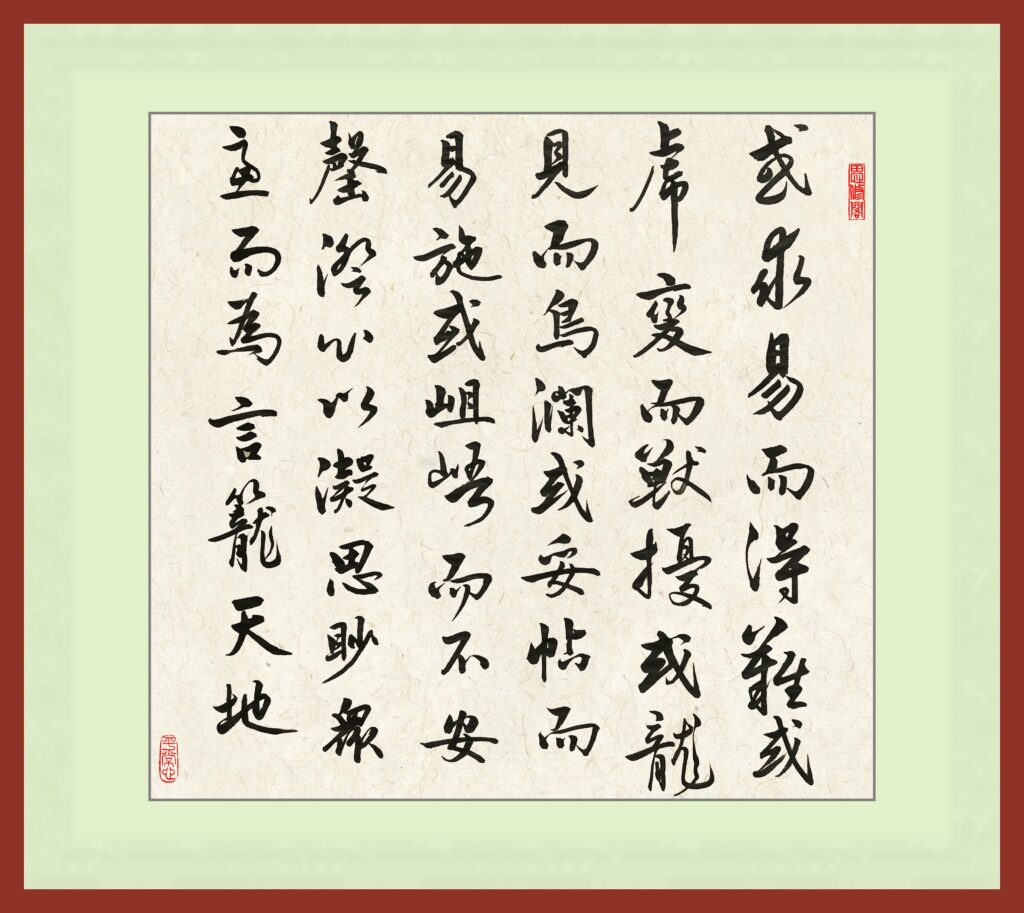 或求易而得難或
虎變而獸擾或龍
見而鳥瀾或妥帖而
易施或岨峿而不安
罄澄心以凝思眇衆
慮而為言籠天地
平常心